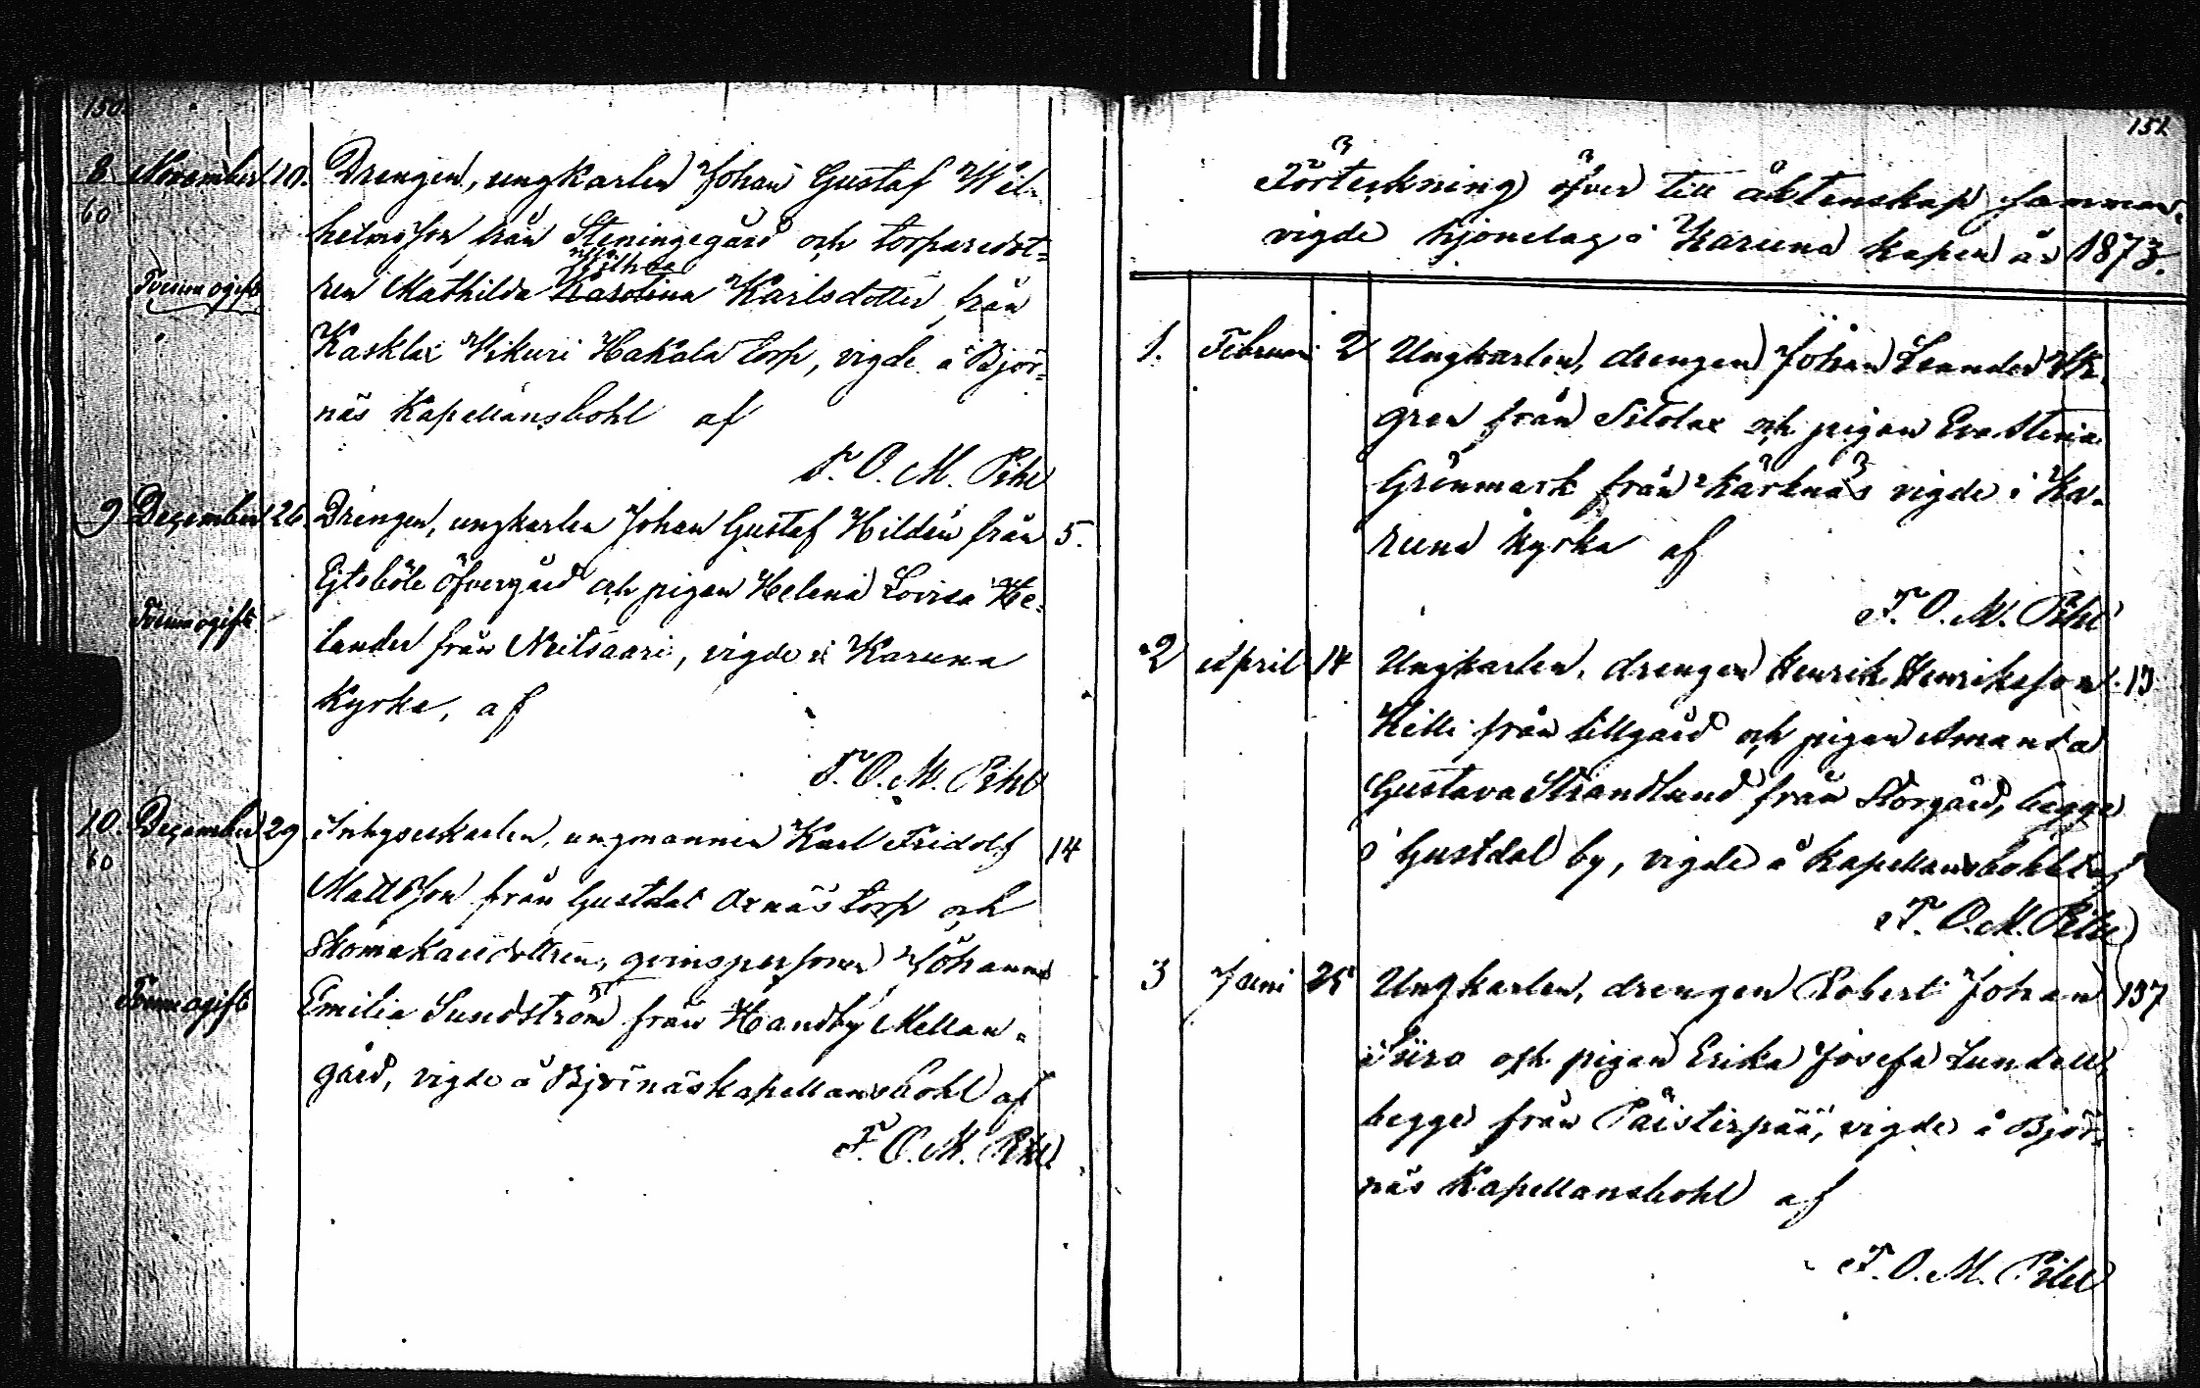 150
8 November 10. Drengen, ungkarlen Johan Gustaf Wil-
60 helmsson från Steningegård och torparedot-
Agatha
Förmögift ren Mathilda Karolina Karlsdotter från
Kasklax Wikuri Hakala torp, vigde å Björ-
näs Kapellansbohl af
F. O. M. Pihl
9 December 26. Drengen, ungkarlen Johan Gustaf Hildén från 5.
Ejtsböle Öfvergård och pigan Helena Lovisa He-
Förmögift lander från Neitsaari, vigde i Karuna
Kyrka, af
F. O. M. Pihl
10. December 29 Inhyseskarlen, ungmannen Karl Fridolf 14
60 Mattsson från Gustdal Axnäs torp och
skomakaredottren, qvinspersonen Johanna
Förmögift Emilia Sundström från Handby Mellan-
gård, vigde å Björnäs kapellansbohl af
F. O. M. Pihl
151
Förteckning öfver till äktenskap samman-
vigde hjonelag i Karuna kapell år 1873.
1. Februari 2 Ungkarlen, drengen Johan Leander
gren från Sitolax och pigan Eva Stina
Grönmark från Kärknäs vigde i Ka-
runa kyrka af
F. O. M. Pihl
2 April 14 Ungkarlen, drengen Henrik Henriksson 13
Killi från Lillgård och pigan Amanda
Gustava Strandlund från Storgård, begge
i Gustdal by, vigde å Kapellansbohlet af
F. O. M. Pihl
3 Juni 25 Ungkarlen, drengen Robert Johan 137
och pigan Erika Josefa Lundell
begge från Päistärpää, vigde å Björ-
näs Kapellansbohl af
F. O. M. Pihl